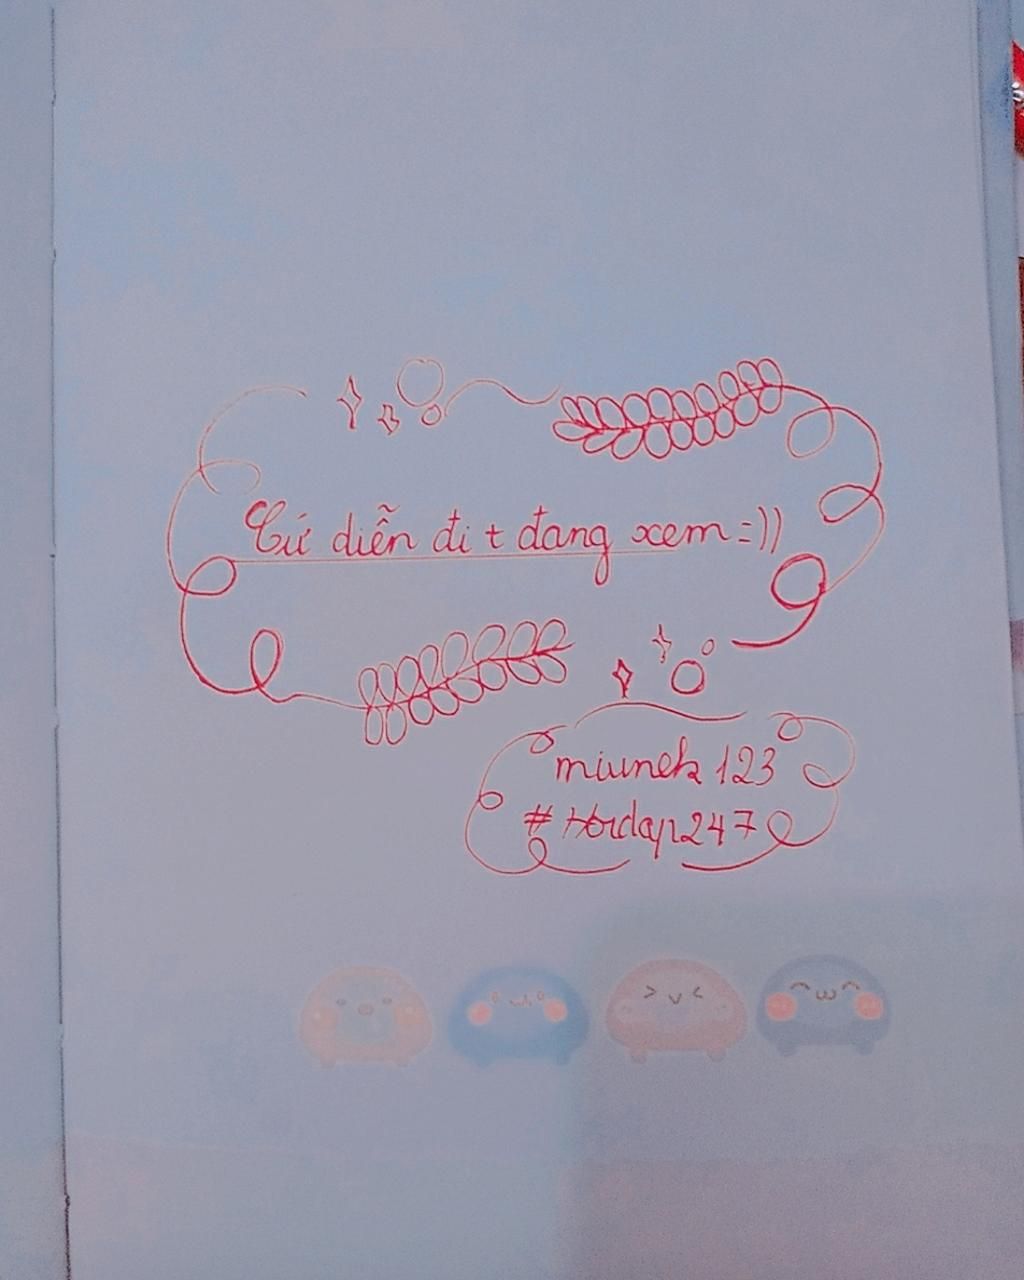 Cứ diễn đi t đang xem =))
miunek 123
# Hoidap247